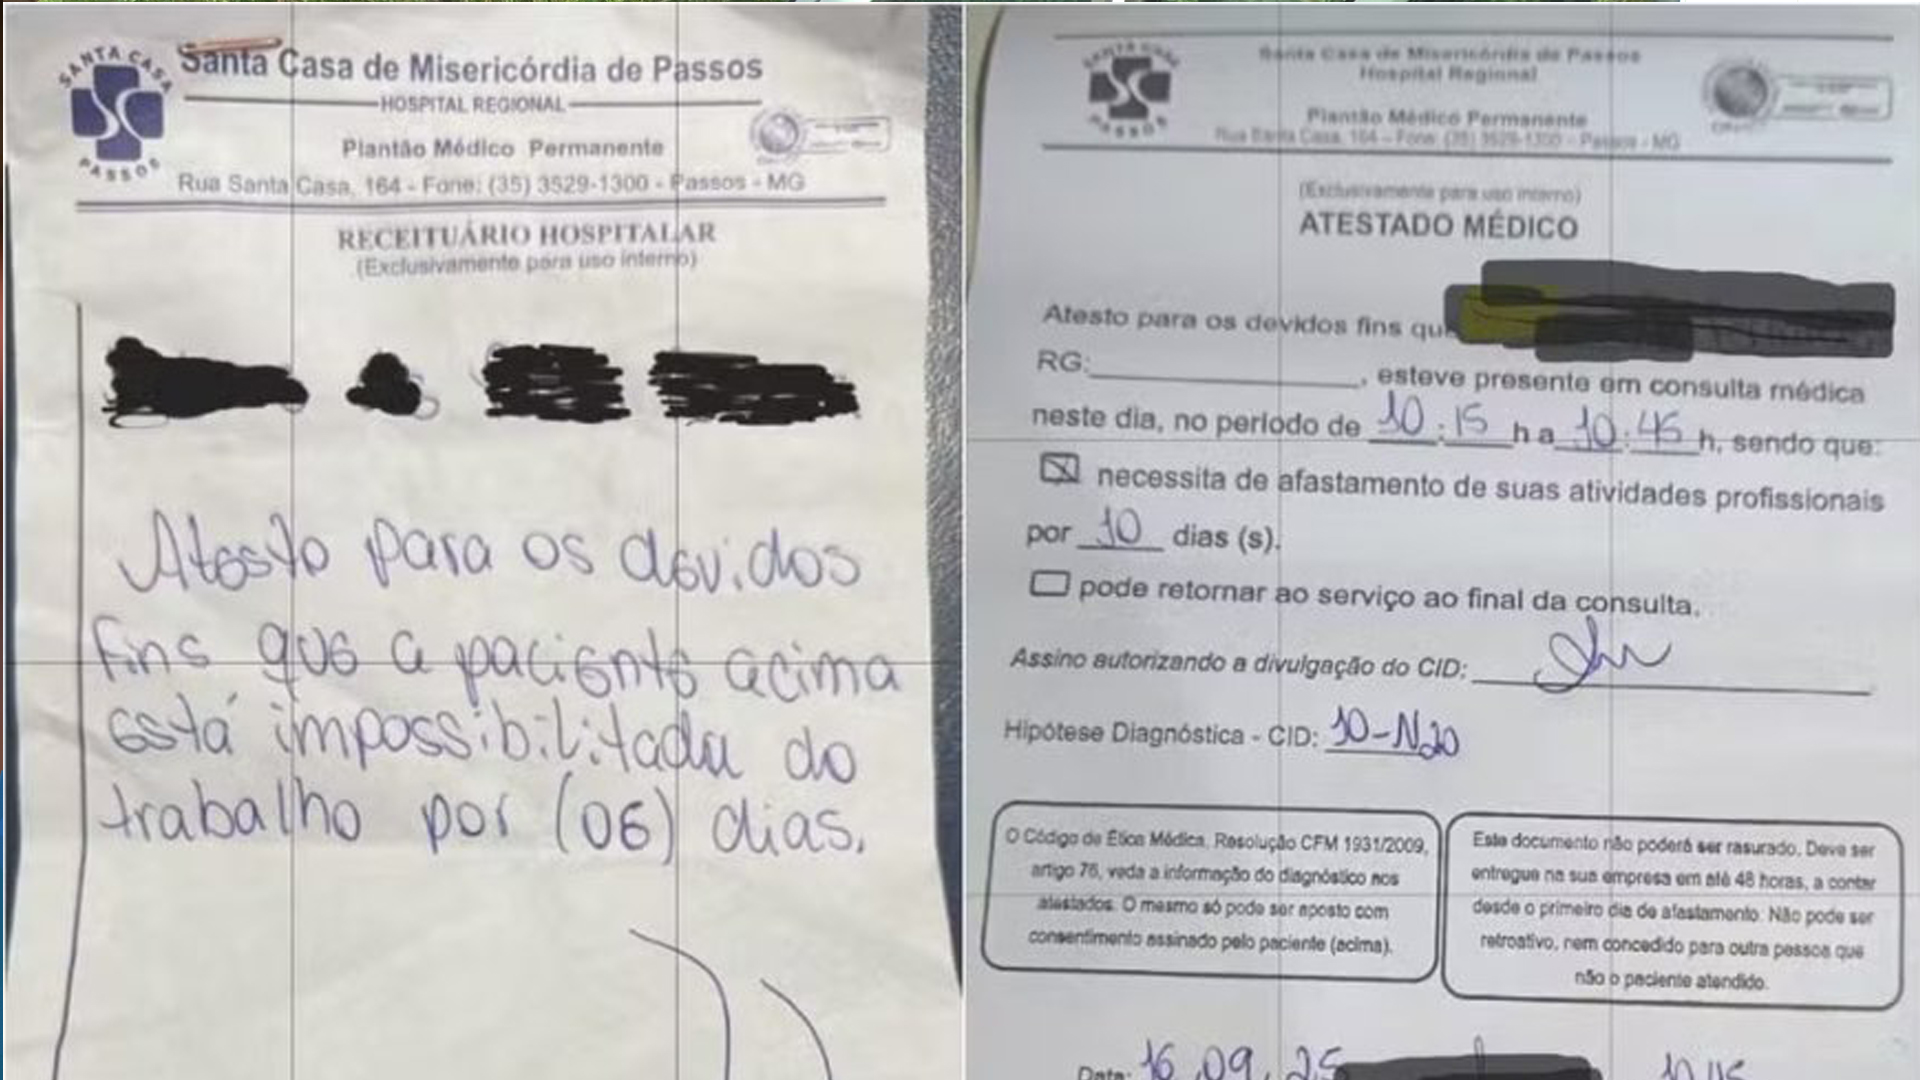 SANTA CASA
PASSOS
Santa Casa de Misericórdia de Passos
HOSPITAL REGIONAL
Plantão Médico Permanente
Rua Santa Casa, 164 - Fone: (35) 3529-1300 - Passos - MG
RECEITUÁRIO HOSPITALAR
(Exclusivamente para uso interno)
Atesto para os devidos
fins que a paciente acima
está impossibilitada do
trabalho por (06) dias.
SANTA CASA
PASSOS
Santa Casa de Misericórdia de Passos
Hospital Regional
Plantão Médico Permanente
Rua Santa Casa, 164 - Fone: (35) 3529-1300 - Passos - MG
(Exclusivamente para uso interno)
ATESTADO MÉDICO
Atesto para os devidos fins qu
RG:____________, esteve presente em consulta médica
neste dia, no período de 10:15 h a 10:45 h, sendo que:
necessita de afastamento de suas atividades profissionais
por 10 dias (s).
pode retornar ao serviço ao final da consulta.
Assino autorizando a divulgação do CID:
Hipótese Diagnóstica - CID: 10-N20
O Código de Ética Médica, Resolução CFM 1931/2009,
artigo 76, veda a informação do diagnóstico nos
atestados. O mesmo só pode ser aposto com
consentimento assinado pelo paciente (acima).
Este documento não poderá ser rasurado. Deve ser
entregue na sua empresa em até 48 horas, a contar
desde o primeiro dia de afastamento. Não pode ser
retroativo, nem concedido para outra pessoa que
não o paciente atendido.
Data: 16.09.25